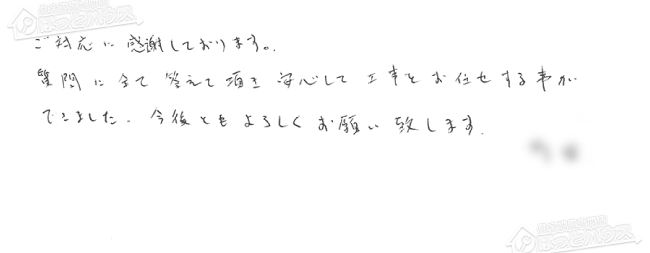 ご対応に感謝しております。
質問に全て答えて頂き安心して工事をお任せする事が
できました。今後ともよろしくお願い致します。